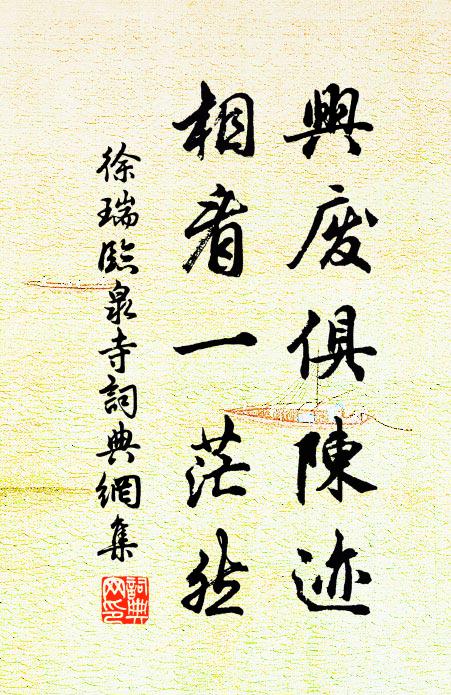 興废俱陳迹
相看一茫然
徐瑞臨泉寺詞典網集
詞典
网印